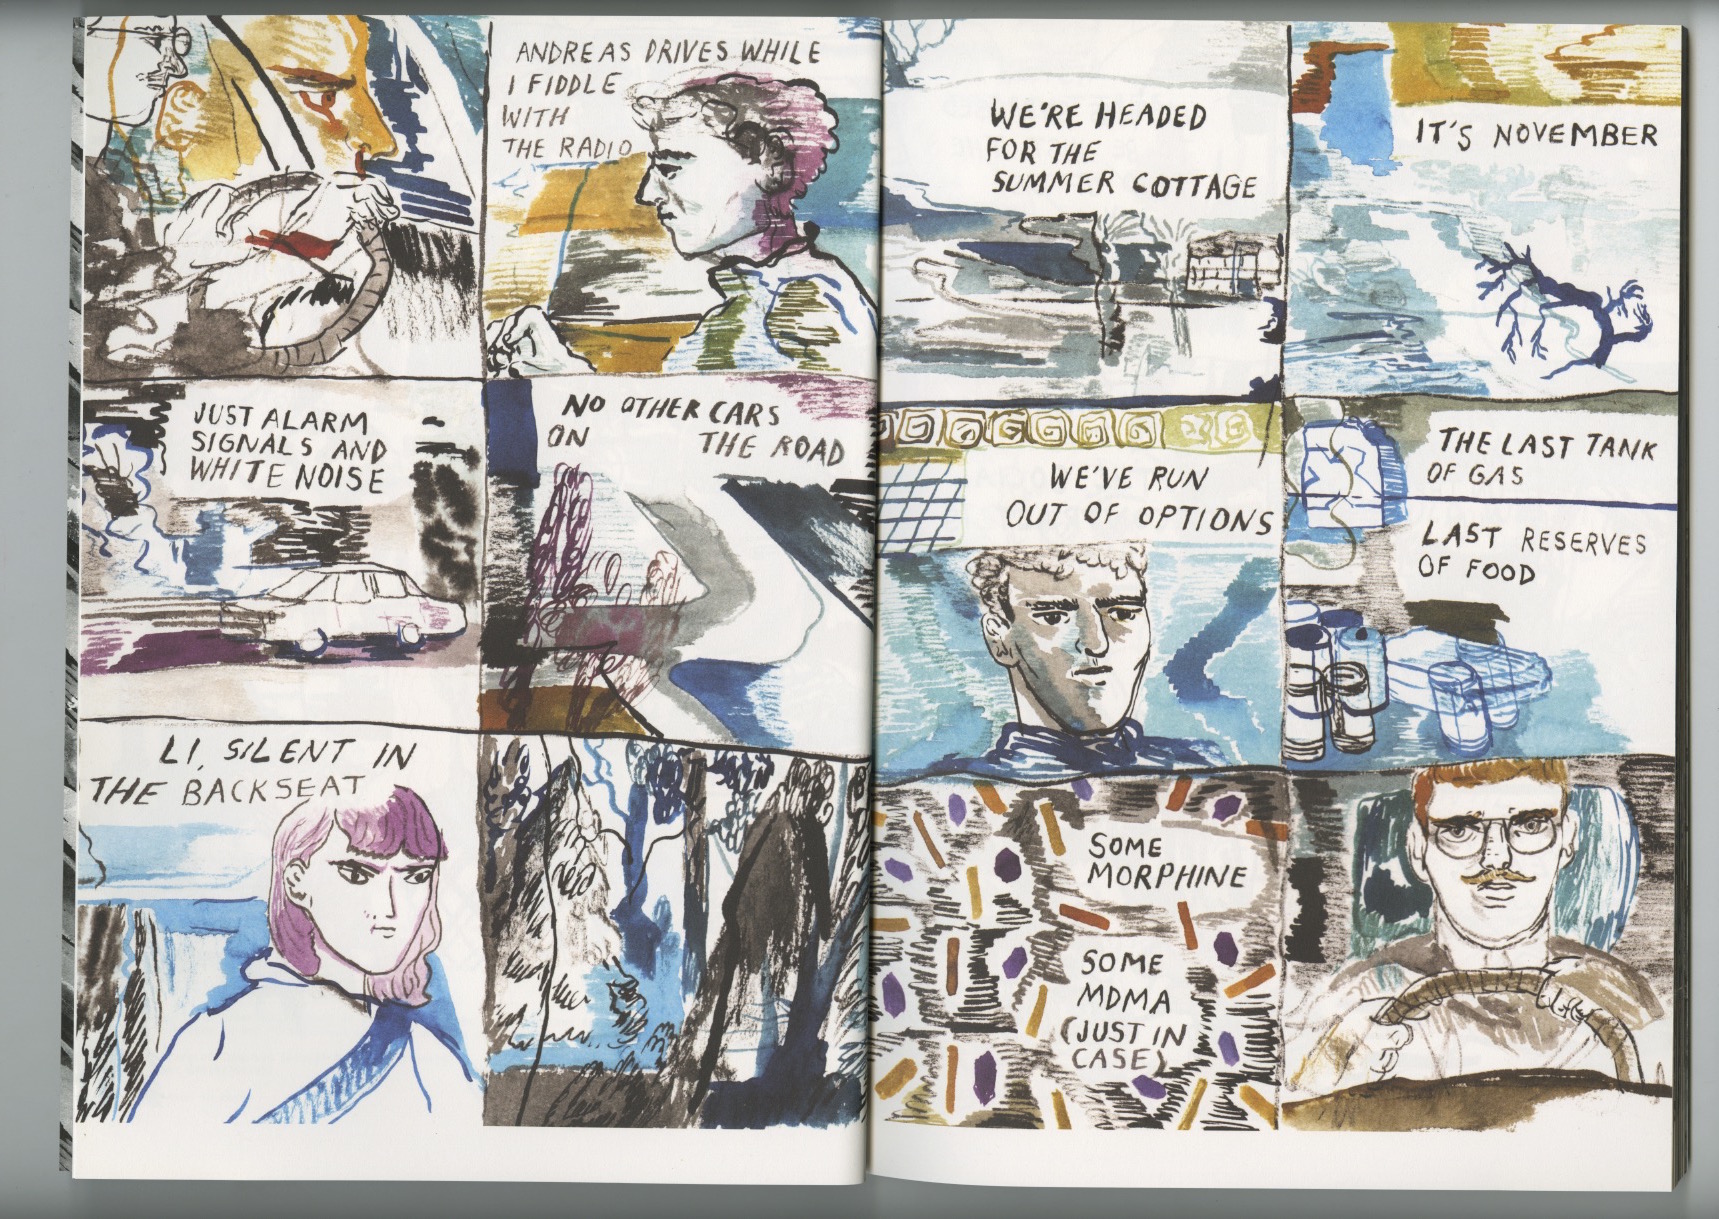 ANDREAS DRIVES WHILE
I FIDDLE
WITH
THE RADIO
JUST ALARM
SIGNALS AND
WHITE NOISE
NO OTHER CARS
ON THE ROAD
LI, SILENT IN
THE BACKSEAT
WE'RE HEADED
FOR THE
SUMMER COTTAGE
IT'S NOVEMBER
WE'VE RUN
OUT OF OPTIONS
THE LAST TANK
OF GAS
LAST RESERVES
OF FOOD
SOME
MORPHINE
SOME
MDMA
(JUST IN
CASE)